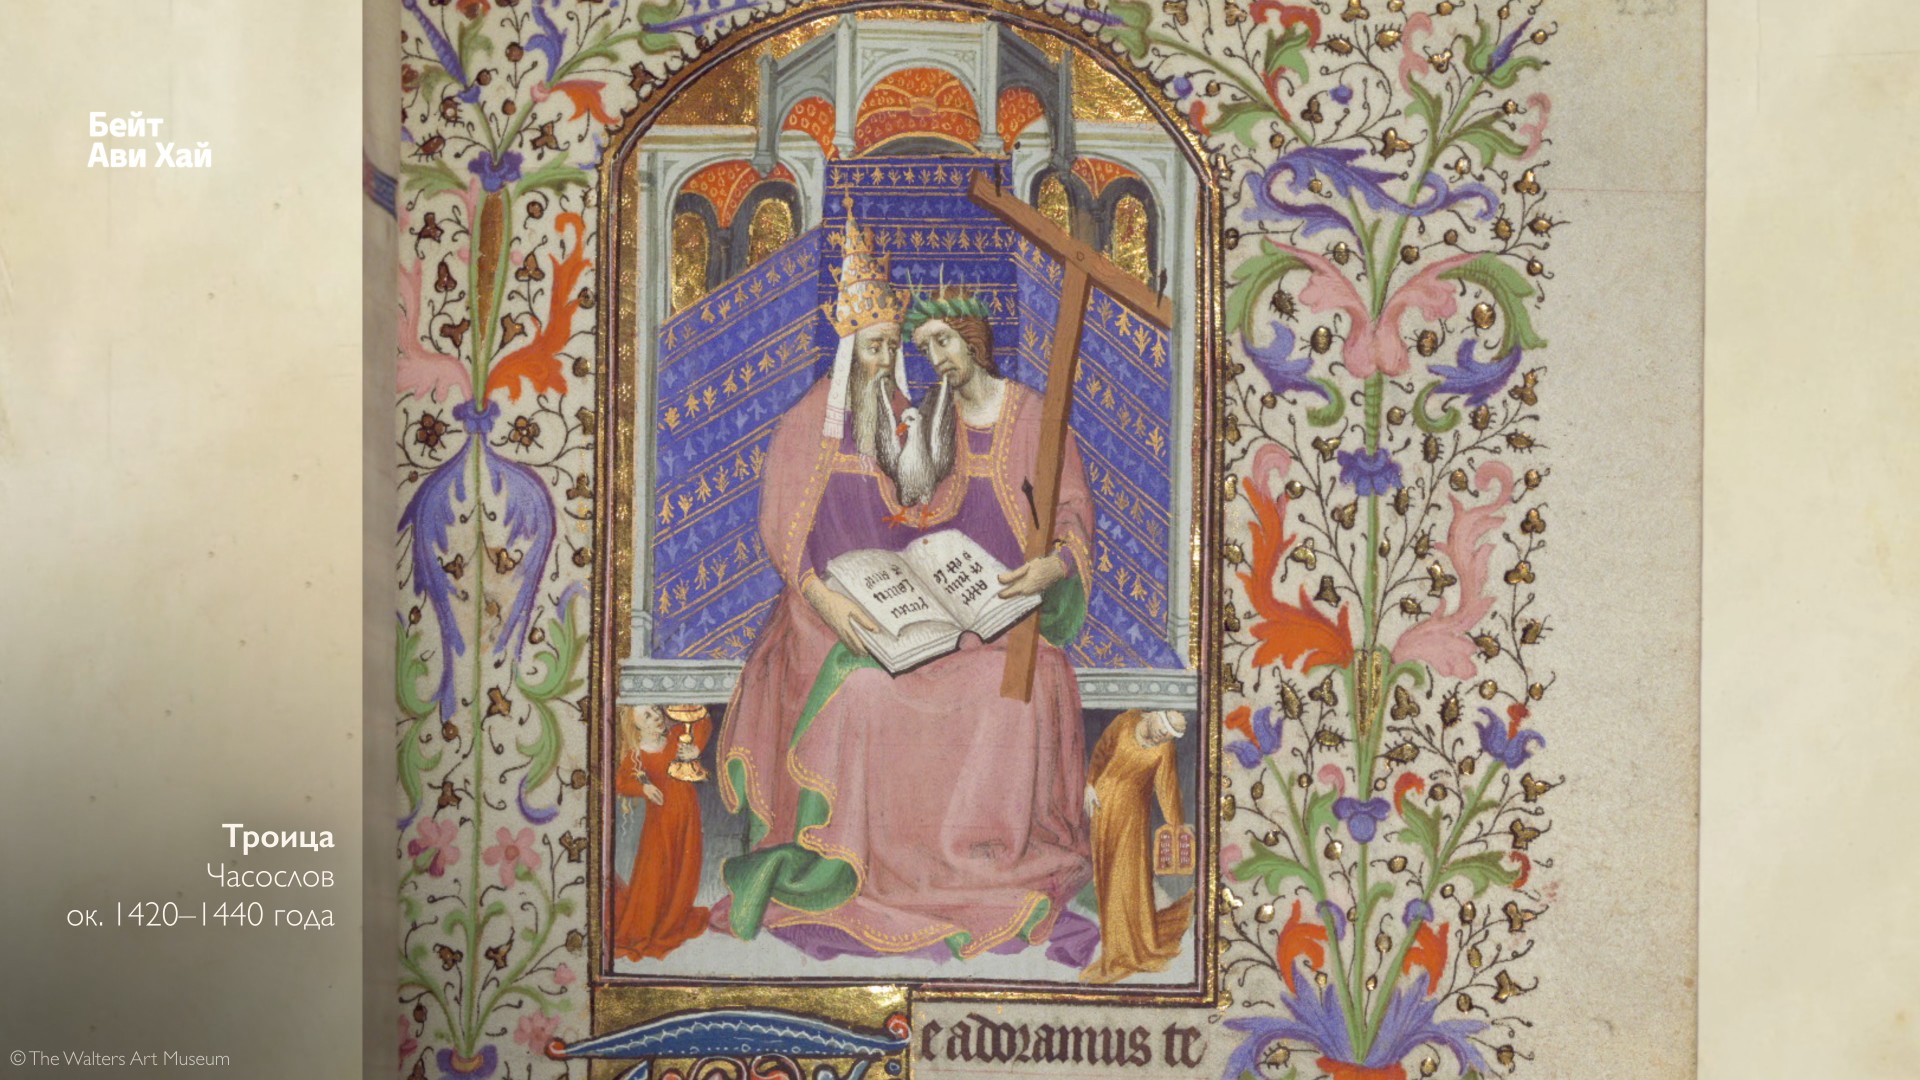 Бейт
Ави Хай
Троица
Часослов
ок. 1420–1440 года
©The Walters Art Museum
e adoramus te